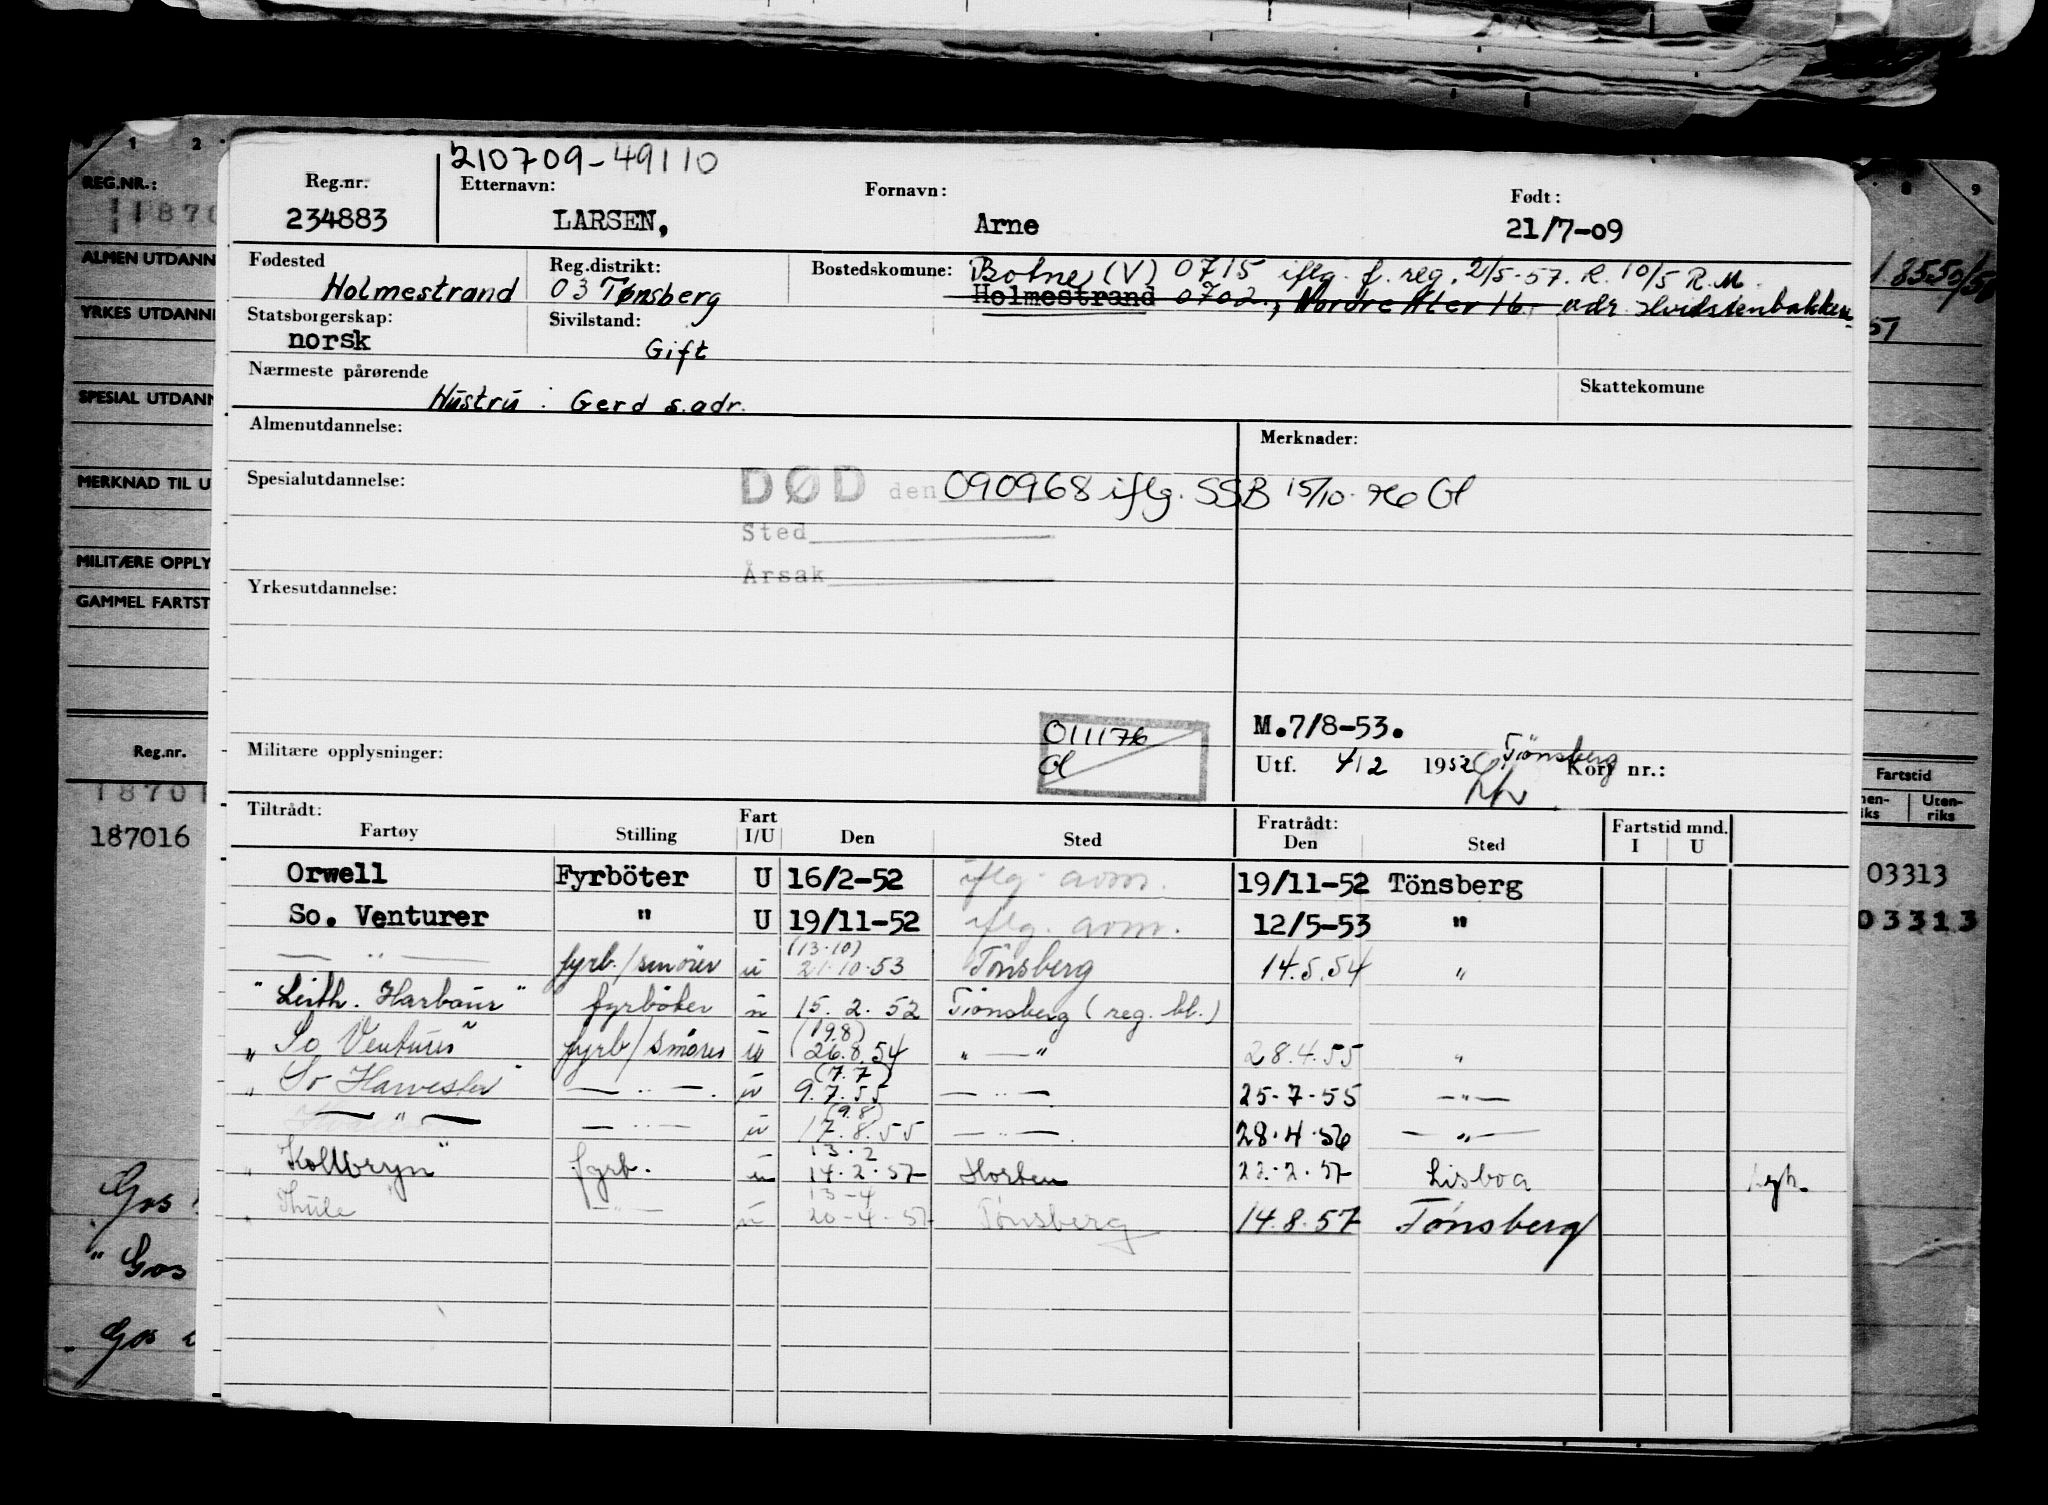 1 2 8 9
REG.NR.:
ALMEN UTDANN
YRKES UTDANN
SPESIAL UTDANN
MERKNAD TIL U
MILITÆRE OPPLY
GAMMEL FARTST
Reg.nr.
187016
Gos
" Gos
Gos
210709-49110
Reg.nr. Etternavn: Fornavn: Født:
234883 LARSEN, Arne 21/7-09
Fødested Reg.distrikt: Bostedskomune: Botne (V) 0715 iflg. f. reg. 2/5-57. R. 10/5 R.M.
Holmestrand 03 Tønsberg Holmestrand 0702, Nordre 16 adr. Hvidstenbakken
Statsborgerskap: Sivilstand:
norsk Gift
Nærmeste pårørende Skattekomune
Hustru: Gerd s.adr.
Almenutdannelse: Merknader:
Spesialutdannelse: DØD den 090968 iflg. SSB 15/10-76 Gl
Sted
Årsak
Yrkesutdannelse:
M.7/8-53.
Militære opplysninger: 011176 Utf. 4/2 1952 Tönsberg Kort nr.:
Gl
Tiltrådt: Fratrådt: Fartstid mnd.
Fartøy Stilling Fart I/U Den Sted Den Sted I U
Orwell Fyrböter U 16/2-52 iflg. avm. 19/11-52 Tönsberg
So. Venturer " U 19/11-52 iflg. avm. 12/5-53 "
— " — fyrb./smörer u (13.10) 21.10.53 Tönsberg 14.5.54 "
"Leith. Harbour" fyrböter u 15.2.52 Tönsberg (reg. bl.)
"So Venturer" fyrb/smörer u (19.8) 26.8.54 " — " 28.4.55 "
"So Harvester" — " — u (7.7) 9.7.55 — " — 25-7-55 — " —
— " — — " — u (9.8) 17.8.55 — " — 28.4.56 — " —
"Kollbryn" fyrb. u 13.2 14.2.57 Horten 22.2.57 Lisboa
"Thule — " — u 13-4 20-4-57 Tønsberg 14.8.57 Tønsberg
Fartstid
Uten-
riks
03313
03313